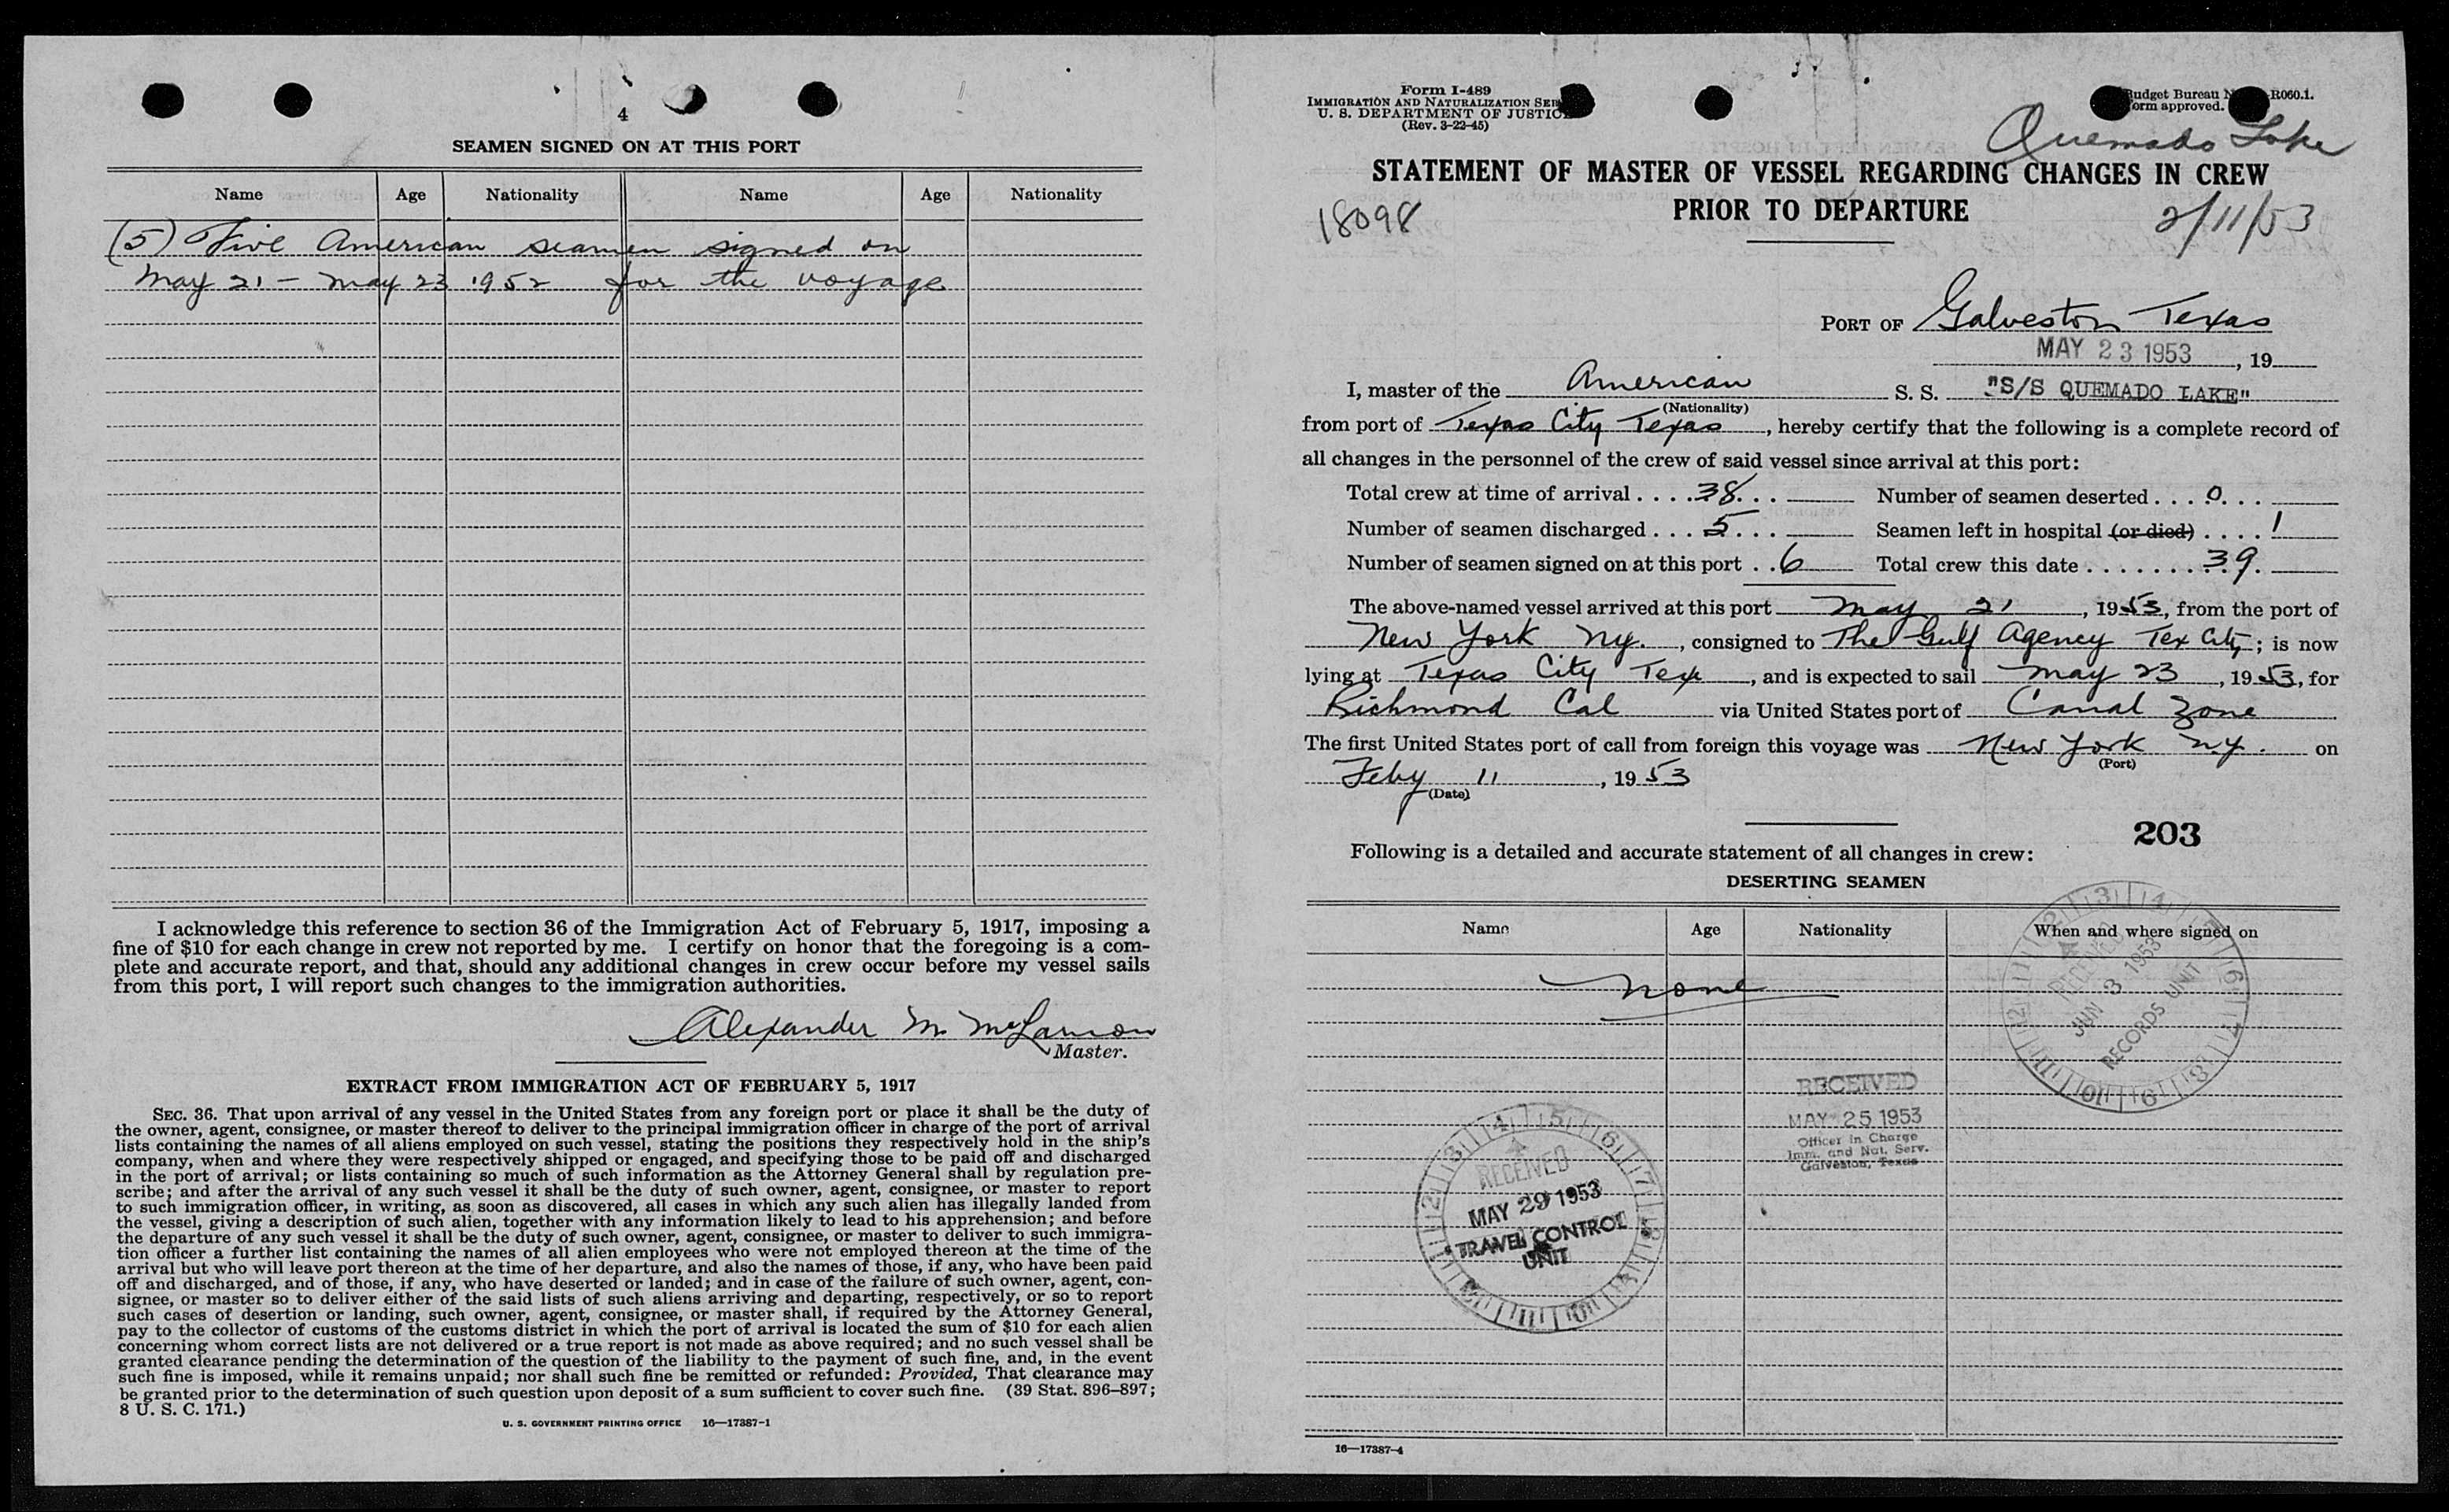 4
SEAMEN SIGNED ON AT THIS PORT
Name Age Nationality Name Age Nationality
(5) Five American seamen signed on
May 21 - May 23 1952 for the voyage
I acknowledge this reference to section 36 of the Immigration Act of February 5, 1917, imposing a
fine of $10 for each change in crew not reported by me. I certify on honor that the foregoing is a com-
plete and accurate report, and that, should any additional changes in crew occur before my vessel sails
from this port, I will report such changes to the immigration authorities.
Alexander M.
Master.
EXTRACT FROM IMMIGRATION ACT OF FEBRUARY 5, 1917
SEC. 36. That upon arrival of any vessel in the United States from any foreign port or place it shall be the duty of
the owner, agent, consignee, or master thereof to deliver to the principal immigration officer in charge of the port of arrival
lists containing the names of all aliens employed on such vessel, stating the positions they respectively hold in the ship's
company, when and where they were respectively shipped or engaged, and specifying those to be paid off and discharged
in the port of arrival; or lists containing so much of such information as the Attorney General shall by regulation pre-
scribe; and after the arrival of any such vessel it shall be the duty of such owner, agent, consignee, or master to report
to such immigration officer, in writing, as soon as discovered, all cases in which any such alien has illegally landed from
the vessel, giving a description of such alien, together with any information likely to lead to his apprehension; and before
the departure of any such vessel it shall be the duty of such owner, agent, consignee, or master to deliver to such immigra-
tion officer a further list containing the names of all alien employees who were not employed thereon at the time of the
arrival but who will leave port thereon at the time of her departure, and also the names of those, if any, who have been paid
off and discharged, and of those, if any, who have deserted or landed; and in case of the failure of such owner, agent, con-
signee, or master so to deliver either of the said lists of such aliens arriving and departing, respectively, or so to report
such cases of desertion or landing, such owner, agent, consignee, or master shall, if required by the Attorney General,
pay to the collector of customs of the customs district in which the port of arrival is located the sum of $10 for each alien
concerning whom correct lists are not delivered or a true report is not made as above required; and no such vessel shall be
granted clearance pending the determination of the question of the liability to the payment of such fine, and, in the event
such fine is imposed, while it remains unpaid; nor shall such fine be remitted or refunded: Provided, That clearance may
be granted prior to the determination of such question upon deposit of a sum sufficient to cover such fine. (39 Stat. 896–897;
8 U. S. C. 171.)
U. S. GOVERNMENT PRINTING OFFICE 16—17387-1
Form I-489
IMMIGRATION AND NATURALIZATION SER
U. S. DEPARTMENT OF JUSTIC
(Rev. 3-22-45)
Budget Bureau N R060.1.
orm approved.
Quemado Lake
STATEMENT OF MASTER OF VESSEL REGARDING CHANGES IN CREW
PRIOR TO DEPARTURE
18098
2/11/53
PORT OF Galveston Texas
MAY 23 1953, 19
I, master of the American S. S. "S/S QUEMADO LAKE"
(Nationality)
from port of Texas City Texas, hereby certify that the following is a complete record of
all changes in the personnel of the crew of said vessel since arrival at this port:
Total crew at time of arrival .... 38 ... Number of seamen deserted ... 0 ...
Number of seamen discharged ... 5 ... Seamen left in hospital (or died) .... 1
Number of seamen signed on at this port .. 6 Total crew this date ....... 39.
The above-named vessel arrived at this port May 21, 1953, from the port of
New York Ny., consigned to The Gulf Agency Tex City; is now
lying at Texas City Tex, and is expected to sail May 23, 1953, for
Richmond Cal via United States port of Canal Zone
The first United States port of call from foreign this voyage was New York n.y. on
(Port)
Feby 11, 1953
(Date)
203
Following is a detailed and accurate statement of all changes in crew:
DESERTING SEAMEN
Name Age Nationality When and where signed on
None
RECEIVED
JUN 3 1953
RECORDS UNIT
RECEIVED
MAY 25 1953
Officer in Charge
Imm. and Nat. Serv.
Galveston, Texas
RECEIVED
MAY 29 1953
TRAVEL CONTROL
UNIT
16—17387-4